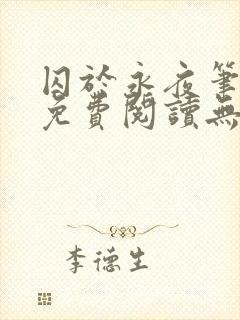 囚於永夜筆
免費閱讀無
李德生